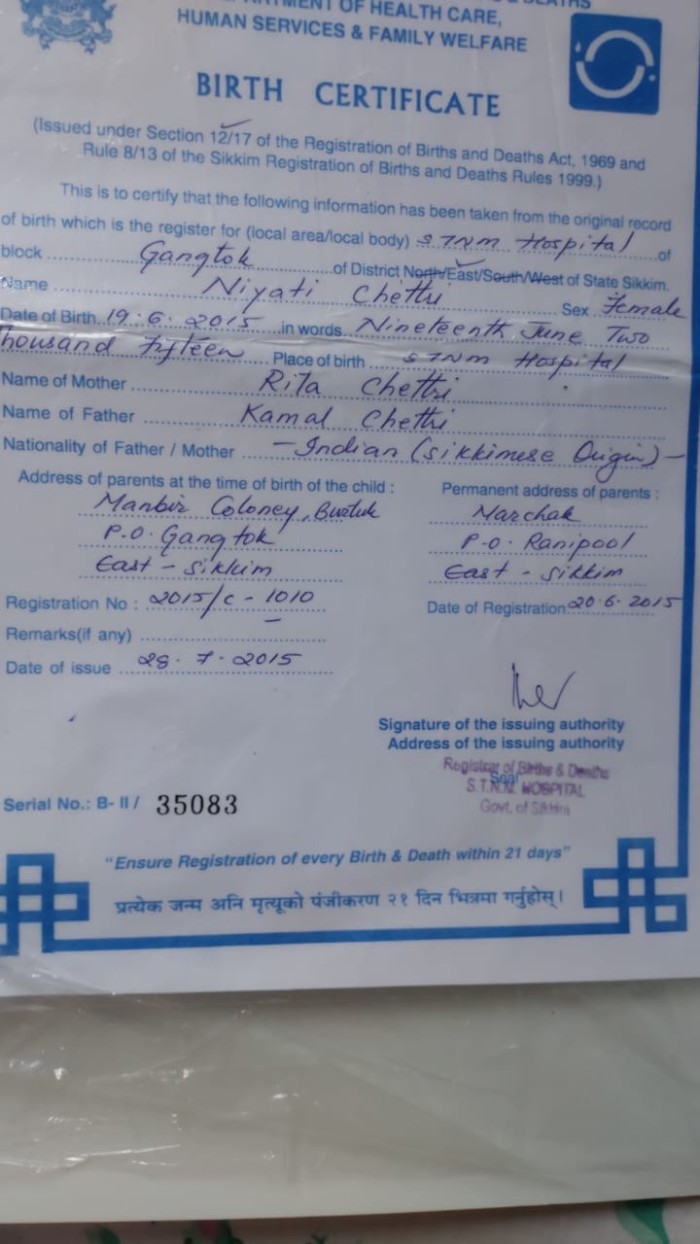 MENT OF HEALTH CARE,
HUMAN SERVICES & FAMILY WELFARE
BIRTH CERTIFICATE
(Issued under Section 12/17 of the Registration of Births and Deaths Act, 1969 and
Rule 8/13 of the Sikkim Registration of Births and Deaths Rules 1999.)
This is to certify that the following information has been taken from the original record
of birth which is the register for (local area/local body) STNM Hospital of
block Gangtok of District North/East/South/West of State Sikkim.
Name Niyati Chettri Sex Female
Date of Birth 19.6.2015 in words Nineteenth June Two
Thousand fifteen Place of birth STNM Hospital
Name of Mother Rita Chettri
Name of Father Kamal Chettri
Nationality of Father / Mother - Indian (Sikkimese Origin) -
Address of parents at the time of birth of the child : Permanent address of parents :
Manbir Coloney, Marchak
P.O. Gangtok P.O. Ranipool
East - Sikkim East - Sikkim
Registration No : 2015/C - 1010 Date of Registration 20.6.2015
Remarks(if any)
Date of issue 28.7.2015
Signature of the issuing authority
Address of the issuing authority
Registrar of Births & Deaths
Seal
S.T.N.M. HOSPITAL
Govt. of Sikkim
Serial No.: B- II / 35083
"Ensure Registration of every Birth & Death within 21 days"
प्रत्येक जन्म अनि मृत्यूको पंजीकरण २१ दिन भित्रमा गर्नुहोस्।